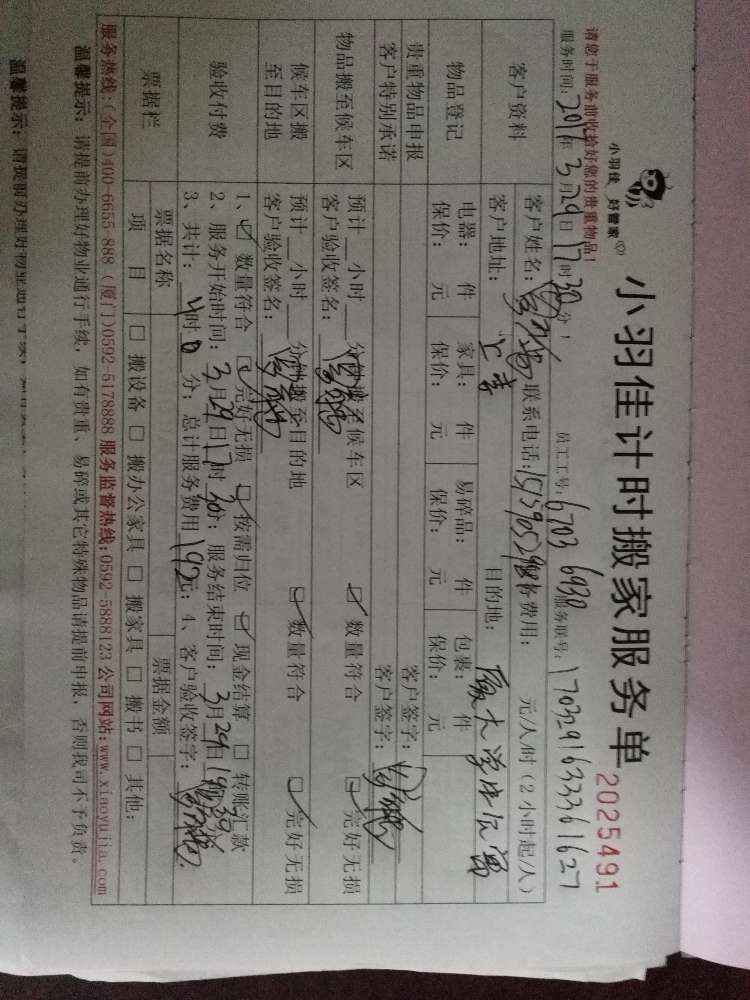 小羽佳 好管家
小羽佳计时搬家服务单 2025491
请您于服务前收给好您的贵重物品！
服务时间：2016年3月29日17时30分！ 员工工号：6703 6930 服务联号：1703291633361627
客户资料 客户姓名： 联系电话： 服务费用： 元/人/时（2小时起/人）
客户地址： 目的地：
物品登记 电器： 件 家具： 件 易碎品： 件 包裹： 件
保价： 元 保价： 元 保价： 元 保价： 元
贵重物品申报 客户签字：
客户特别承诺 客户签字：
物品搬至候车区 预计 小时 分钟搬至候车区 ☑ 数量符合 ☑ 完好无损
客户验收签名：
候车区搬至目的地 预计 小时 分钟搬至目的地 ☑ 数量符合 ☑ 完好无损
客户验收签名：
验收付费 1、☑ 数量符合 ☑ 完好无损 ☑ 按需归位 ☑ 现金结算 □ 转账汇款
2、服务开始时间：3月29日17时30分；服务结束时间：3月29日 时30分
3、共计：4时0分；总计服务费用192元；4、客户验收签字：
票据栏 票据名称 票据金额
项 目 □ 搬设备 □ 搬办公家具 □ 搬家具 □ 搬书 □ 其他：
服务热线：(全国)400-6655-888 (厦门)0592-5178888 服务监督热线：0592-5888123 公司网站：www.xiaoyujia.com
温馨提示：请提前办理好物业通行手续，如有贵重、易碎或其它特殊物品请提前申报，否则我司不予负责。
温馨提示：请提前办理好物业通行手续，